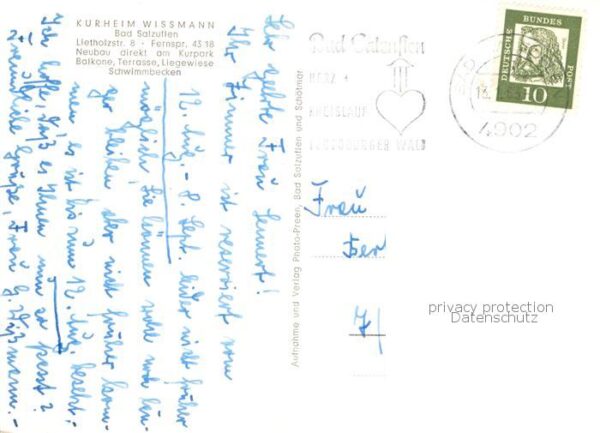 KURHEIM WISSMANN
Bad Salzuflen
Lietholzstr. 8 - Fernspr. 43 18
Neubau direkt am Kurpark
Balkone, Terrasse, Liegewiese
Schwimmbecken
Sehr geehrte Frau Lennert!
Ihr Zimmer ist reserviert vom
12. Aug. - 8. Sept. leider nicht früher
möglich, Sie können wohl noch län-
ger bleiben aber nicht früher kom-
men es ist bis zum 12. Aug. besetzt.
Ich hoffe, daß es Ihnen nun so passt?
Freundliche Grüße, Frau G. Wißmann.-
Aufnahme und Verlag Photo-Preen, Bad Salzuflen und Schötmar
Bad Salzuflen
HERZ +
KREISLAUF
TEUTOBURGER WALD
4902
DEUTSCHE
BUNDES
POST
10
Frau
Ber
71
privacy protection
Datenschutz